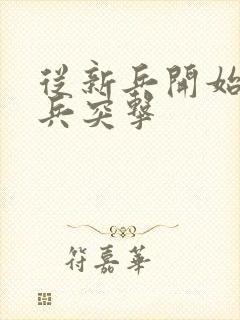 從新兵開始
兵突擊
符嘉華